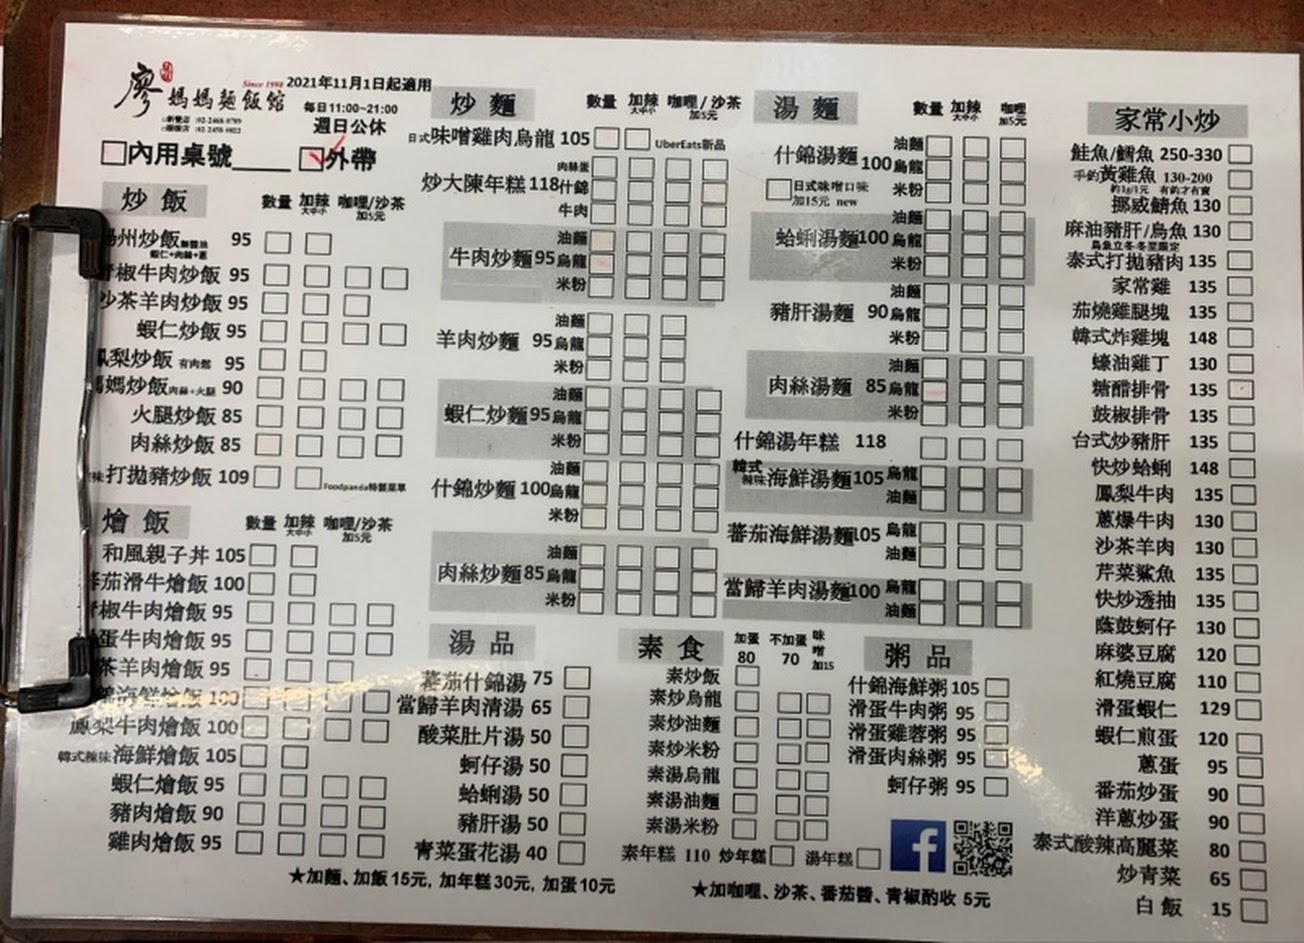 廖媽媽麵飯館
Since 1998
2021年11月1日起適用
每日11:00~21:00
週日公休
內用桌號
外帶
炒飯
數量 加辣 咖哩/沙茶
大中小 加5元
州炒飯 95
蝦仁+肉絲+蔥
椒牛肉炒飯 95
茶羊肉炒飯 95
蝦仁炒飯 95
梨炒飯 有肉鬆 95
媽炒飯 肉絲+火腿 90
火腿炒飯 85
肉絲炒飯 85
味打拋豬炒飯 109
Foodpanda特製菜單
燴飯
數量 加辣 咖哩/沙茶
大中小 加5元
和風親子丼 105
茄滑牛燴飯 100
椒牛肉燴飯 95
蛋牛肉燴飯 95
茶羊肉燴飯 95
錦海鮮燴飯 100
鳳梨牛肉燴飯 100
韓式辣味海鮮燴飯 105
蝦仁燴飯 95
豬肉燴飯 90
雞肉燴飯 95
炒麵
數量 加辣 咖哩/沙茶
大中小 加5元
日式味噌雞肉烏龍 105 UberEats新品
炒大陳年糕 118
肉絲蛋
什錦
牛肉
牛肉炒麵 95
油麵
烏龍
米粉
羊肉炒麵 95
油麵
烏龍
米粉
蝦仁炒麵 95
油麵
烏龍
米粉
什錦炒麵 100
油麵
烏龍
米粉
肉絲炒麵 85
油麵
烏龍
米粉
湯品
蕃茄什錦湯 75
當歸羊肉清湯 65
酸菜肚片湯 50
蚵仔湯 50
蛤蜊湯 50
豬肝湯 50
青菜蛋花湯 40
★加麵、加飯15元, 加年糕30元, 加蛋10元
湯麵
數量 加辣 咖哩
大中小 加5元
什錦湯麵 100
油麵
烏龍
米粉
日式味噌口味
加15元 new
蛤蜊湯麵 100
油麵
烏龍
米粉
豬肝湯麵 90
油麵
烏龍
米粉
肉絲湯麵 85
油麵
烏龍
米粉
什錦湯年糕 118
韓式辣味海鮮湯麵 105
烏龍
油麵
蕃茄海鮮湯麵 105
烏龍
油麵
當歸羊肉湯麵 100
烏龍
油麵
素食
加蛋 不加蛋 味噌
80 70 加15
素炒飯
素炒烏龍
素炒油麵
素炒米粉
素湯烏龍
素湯油麵
素湯米粉
素年糕 110 炒年糕 湯年糕
粥品
什錦海鮮粥 105
滑蛋牛肉粥 95
滑蛋雞蓉粥 95
滑蛋肉絲粥 95
蚵仔粥 95
f
★加咖哩、沙茶、番茄醬、青椒酌收 5元
家常小炒
鮭魚/鱈魚 250-330
手釣黃雞魚 130-200
約1g/1元 有釣才有賣
挪威鯖魚 130
麻油豬肝/烏魚 130
烏魚立冬冬至限定
泰式打拋豬肉 135
家常雞 135
茄燒雞腿塊 135
韓式炸雞塊 148
蠔油雞丁 130
糖醋排骨 135
鼓椒排骨 135
台式炒豬肝 135
快炒蛤蜊 148
鳳梨牛肉 135
蔥爆牛肉 130
沙茶羊肉 130
芹菜鯊魚 135
快炒透抽 135
蔭鼓蚵仔 130
麻婆豆腐 120
紅燒豆腐 110
滑蛋蝦仁 129
蝦仁煎蛋 120
蔥蛋 95
番茄炒蛋 90
洋蔥炒蛋 90
泰式酸辣高麗菜 80
炒青菜 65
白飯 15